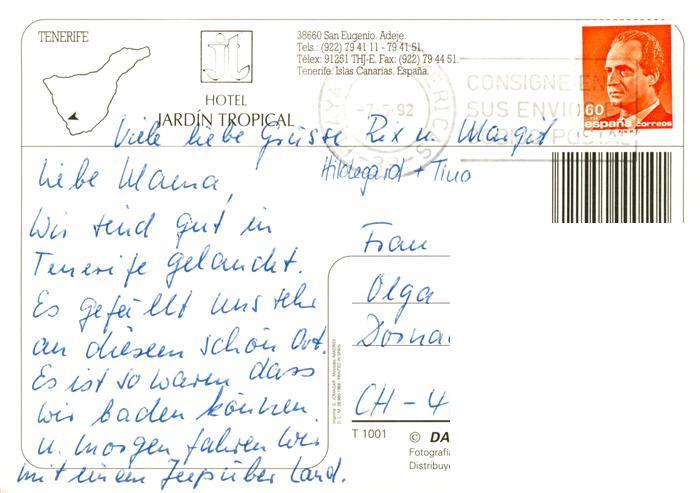 TENERIFE
HOTEL
JARDÍN TROPICAL
38660 San Eugenio. Adeje.
Tels.: (922) 79 41 11 - 79 41 51.
Télex: 91251 THJ-E. Fax: (922) 79 44 51.
Tenerife. Islas Canarias. España.
-7-5-92
CONSIGNE EN
SUS ENVIO
POSTAL
60
españa correos
Viele liebe Grüsse Rix u. Margit
Hildegard + Tino
Liebe Mama,
Wir sind gut in
Tenerife gelandet.
Es gefällt uns sehr
an diesem schön Ort.
Es ist so warm dass
wir baden können
u. morgen fahren wir
mit einem Jeep über Land.
Frau
Olga
Dorna
CH - 4
T 1001
© DA
Fotografí
Distribuye